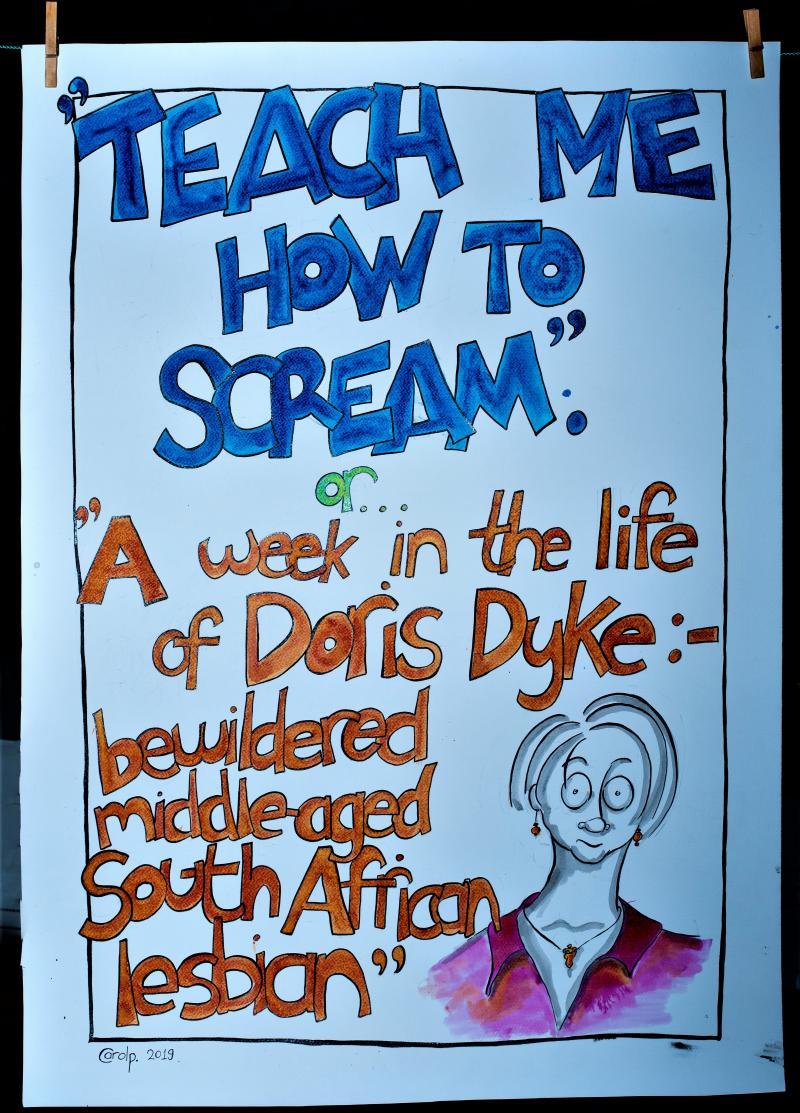 "TEACH ME
HOW TO
SCREAM":
or...
"A week in the life
of Doris Dyke:-
bewildered
middle-aged
South African
lesbian"
Carolp. 2019